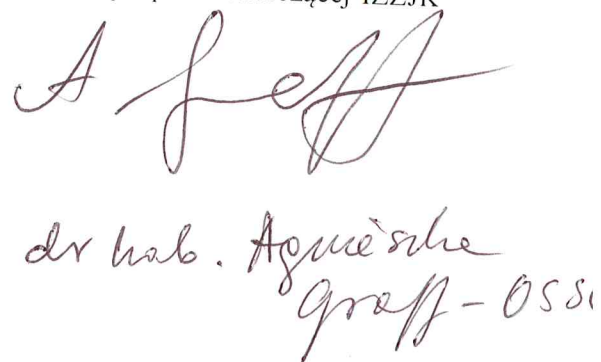 ZZJK
A Graff
dr hab. Agnieszka
Graff-Osso